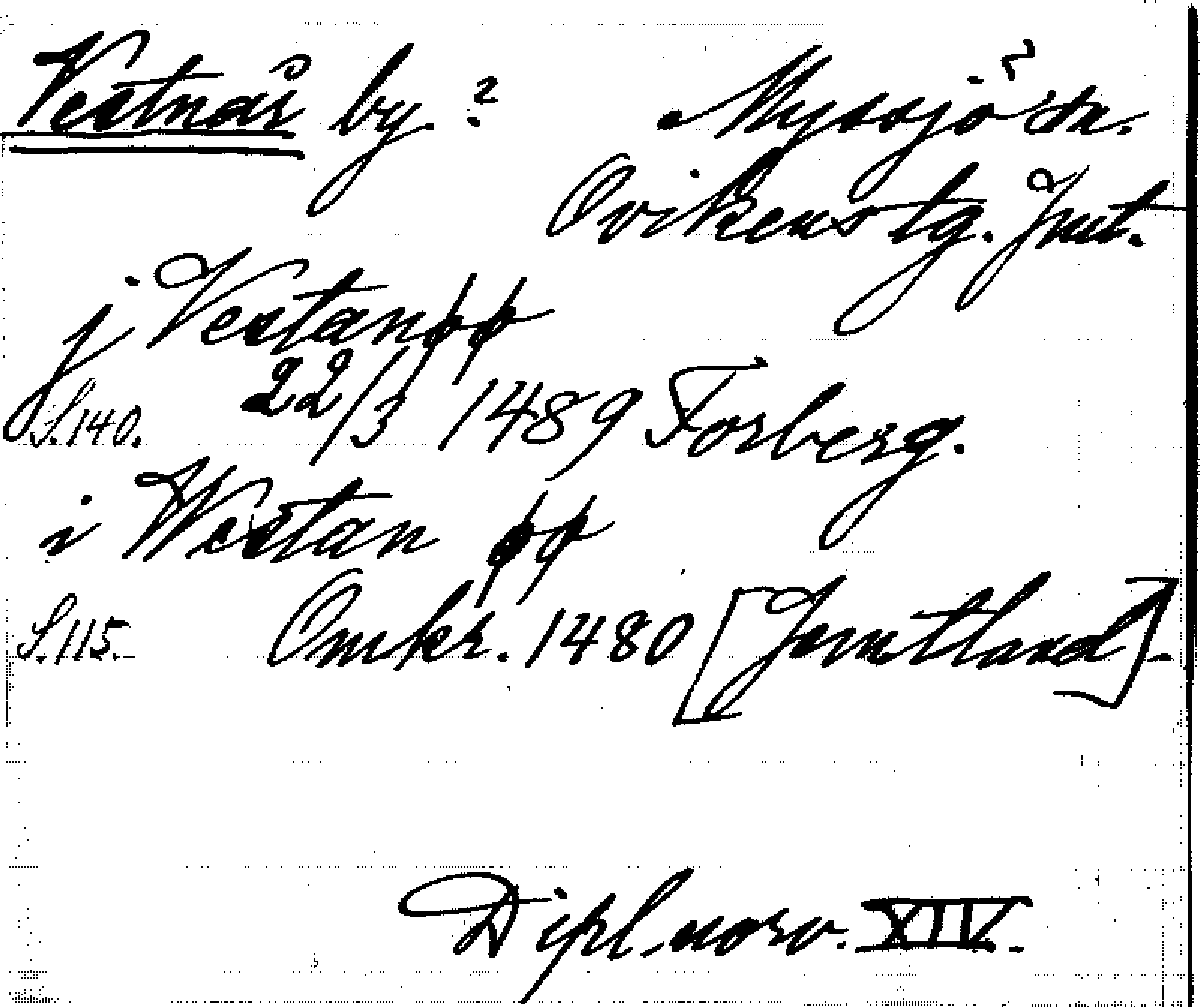 Vestnår by. ? Myssjö sn.
Ovikens tg. Jmt.
j Vestanøø
S. 140. 22/3 1489 Forberg.
i Westan øø
S. 115. Omkr. 1480 [Jemtland].
Dipl. norv. XIV.